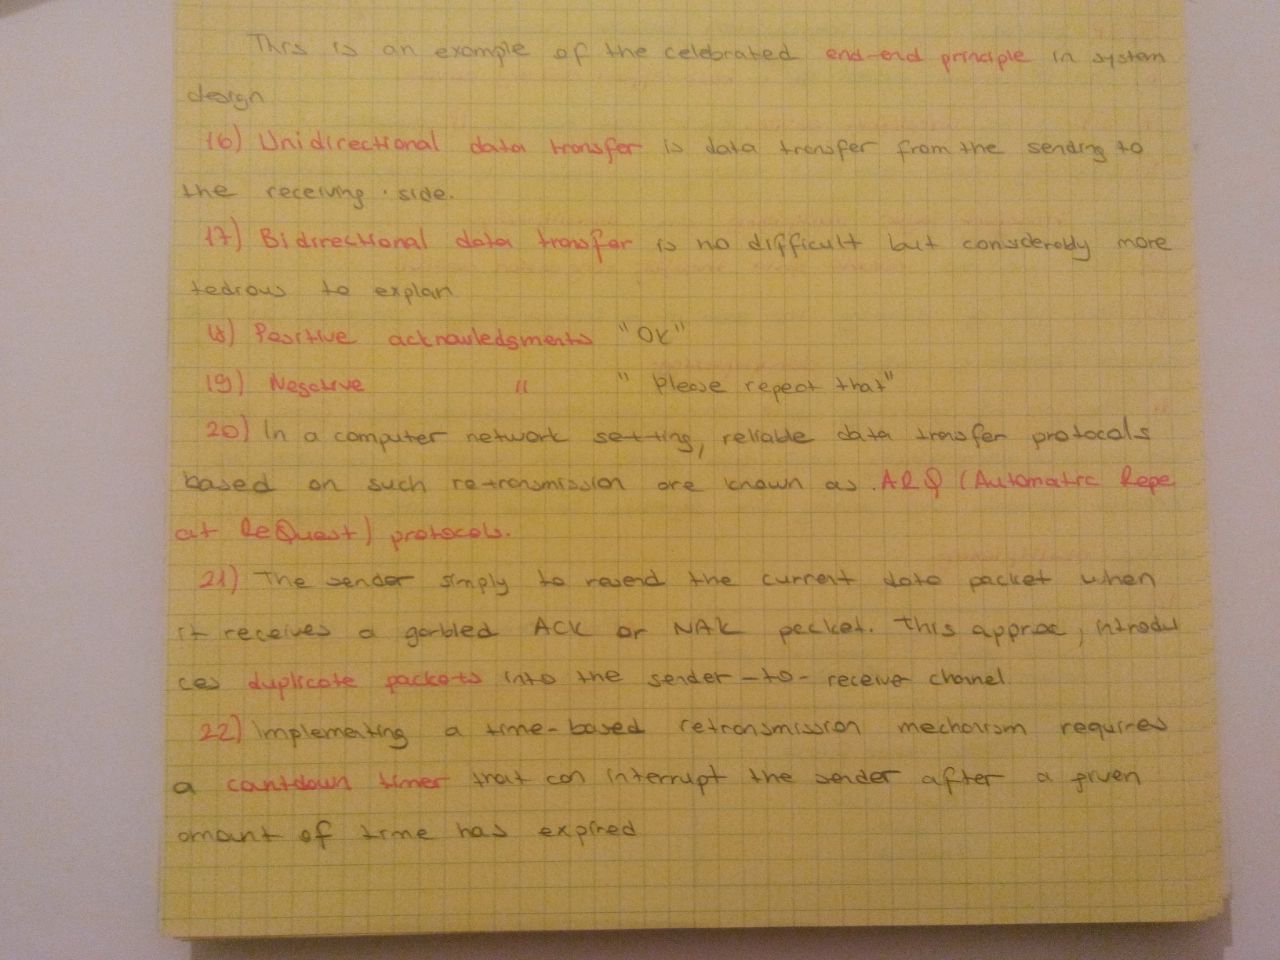 This is an example of the celebrated end-end principle in system
design
16) Unidirectional data transfer is data transfer from the sending to
the receiving side.
17) Bidirectional data transfer is no difficult but considerably more
tedious to explain
18) Positive acknowledgments "OK"
19) Negative " " Please repeat that"
20) In a computer network setting, reliable data transfer protocols
based on such retransmission are known as ARQ (Automatic Repe
at ReQuest) protocols.
21) The sender simply to resend the current data packet when
it receives a garbled ACK or NAK packet. This approac, introdu
ces duplicate packets into the sender-to-receiver channel
22) Implementing a time-based retransmission mechanism requires
a countdown timer that can interrupt the sender after a given
amount of time has expired